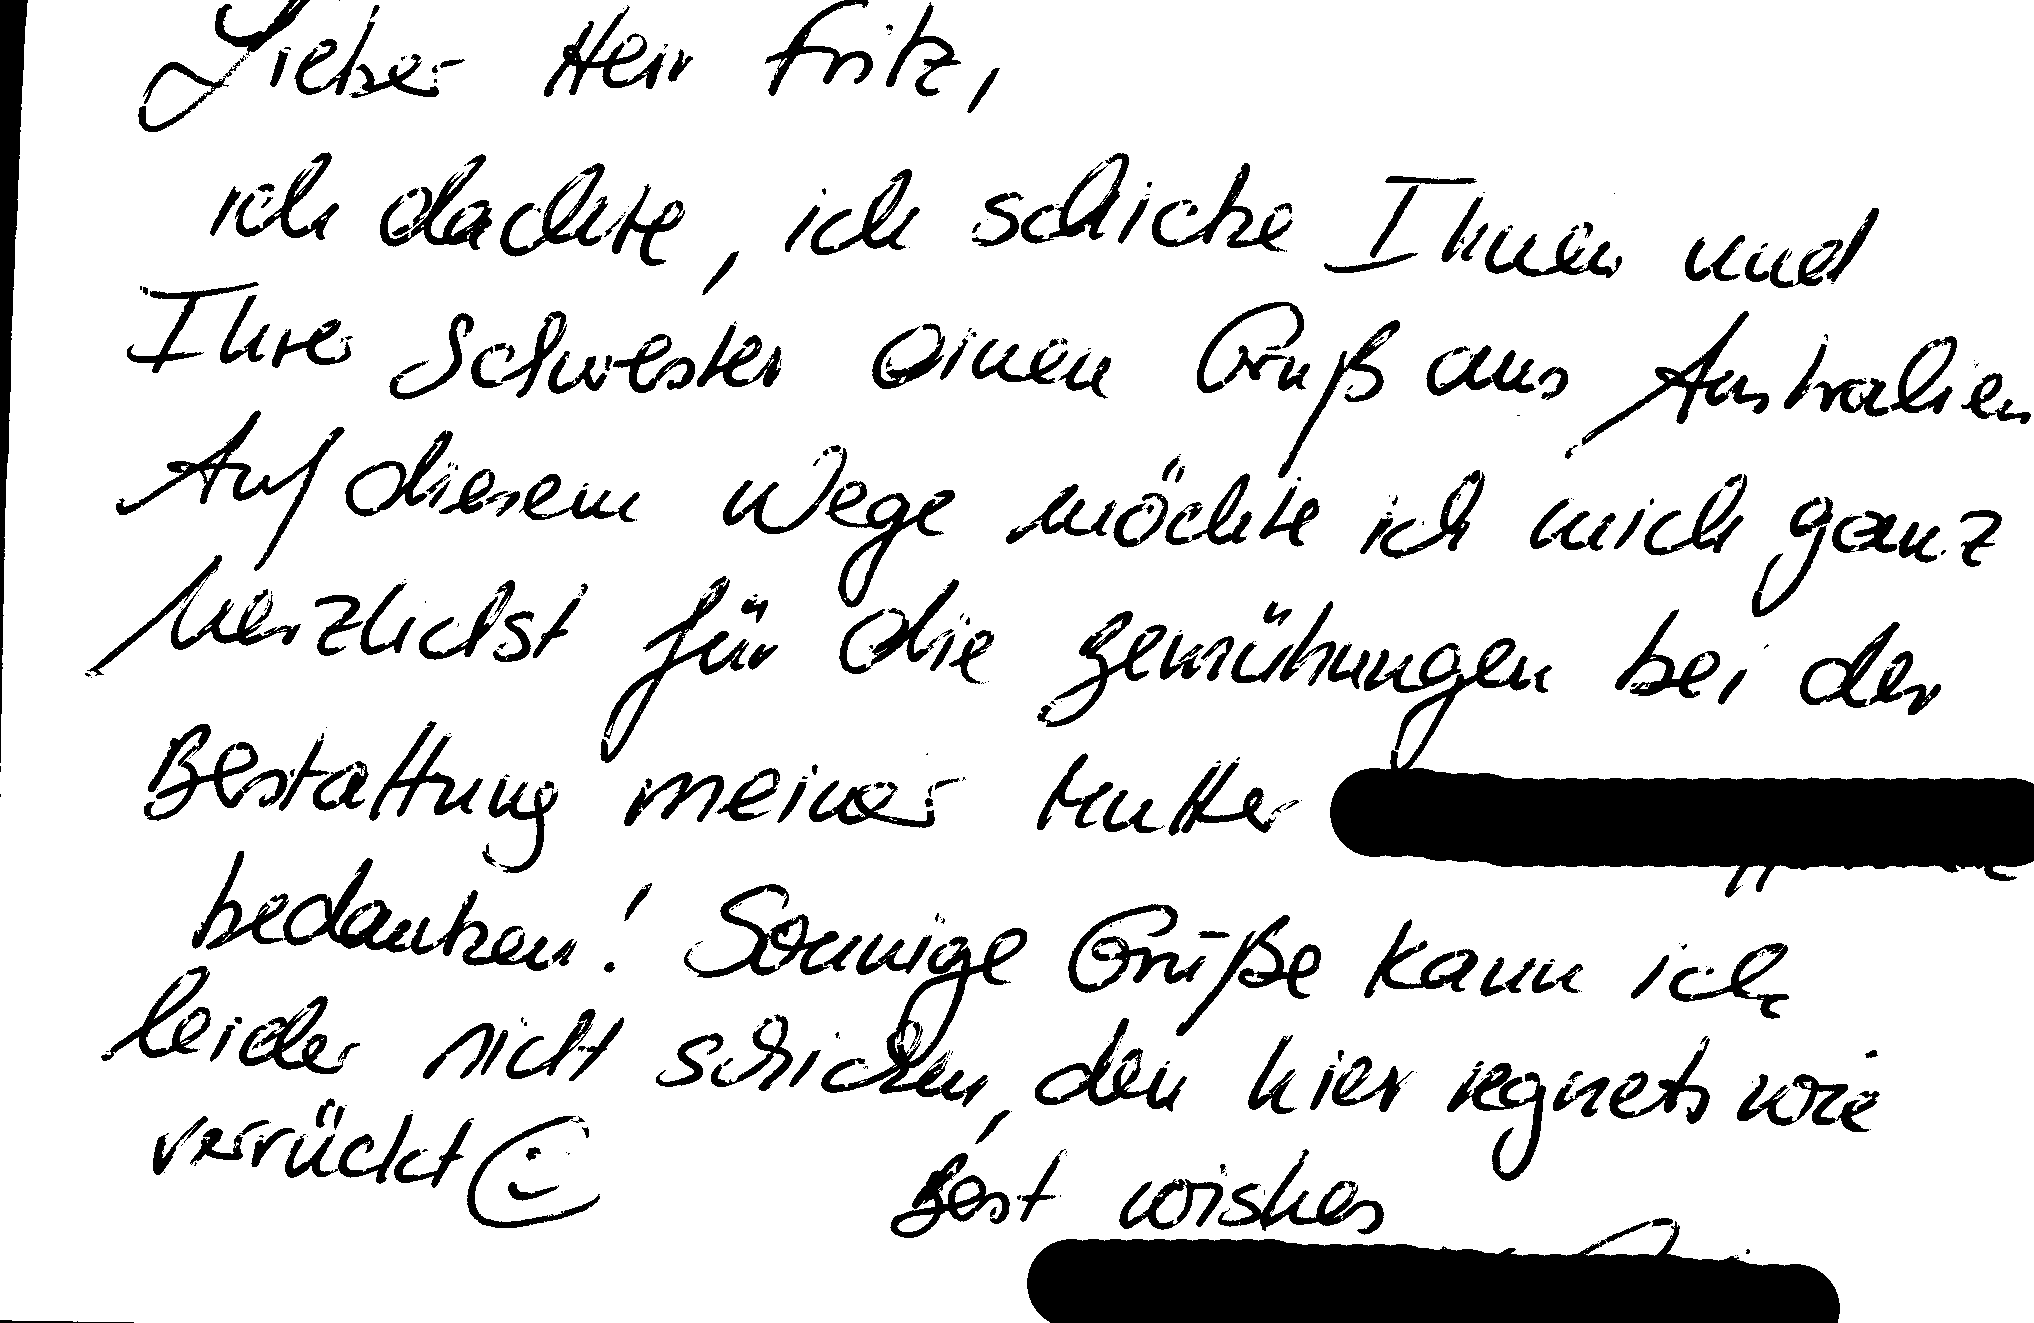 Lieber Herr Fritz,
ich dachte, ich schicke Ihnen und
Ihrer Schwester einen Gruß aus Australien
Auf diesem Wege möchte ich mich ganz
herzlichst für die Bemühungen bei der
Bestattung meiner Mutter
bedanken! Sonnige Grüße kann ich
leider nicht schicken, den hier regnets wie
verrückt
Best wishes